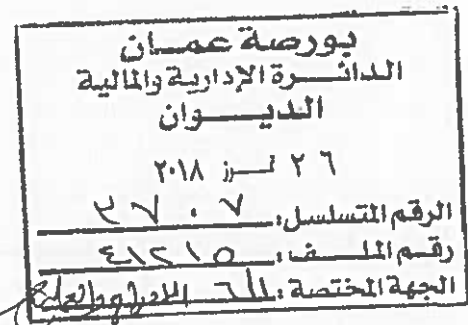 بورصة عمـــان
الدائـــرة الإدارية والمالية
الديـــوان
٢٦ تموز ٢٠١٨
الرقم المتسلسل: ٣٧٠٧
رقم الملـــف: ٤١٢١٥
الجهة المختصة: